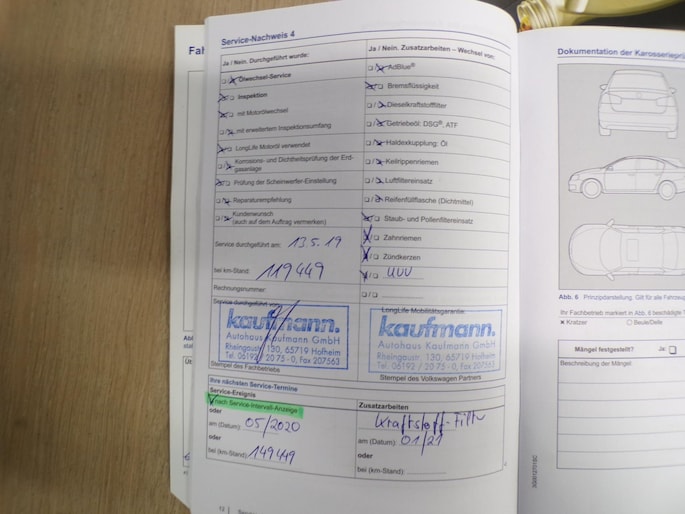 Fah
Service-Nachweis 4
Ja / Nein. Durchgeführt wurde:
Ölwechsel-Service
Inspektion
mit Motorölwechsel
mit erweitertem Inspektionsumfang
LongLife Motoröl verwendet
Korrosions- und Dichtheitsprüfung der Erd-
gasanlage
Prüfung der Scheinwerfer-Einstellung
Reparaturempfehlung
Kundenwunsch
(auch auf dem Auftrag vermerken)
Service durchgeführt am: 13.5.19
bei km-Stand: 119449
Rechnungsnummer:
Service durchgeführt von:
kaufmann.
Autohaus Kaufmann GmbH
Rheingaustr. 130, 65719 Hofheim
Tel. 06192 / 20 75-0, Fax 207563
Stempel des Fachbetriebs
Ja / Nein. Zusatzarbeiten – Wechsel von:
AdBlue®
Bremsflüssigkeit
Dieselkraftstofffilter
Getriebeöl: DSG®, ATF
Haldexkupplung: Öl
Keilrippenriemen
Luftfiltereinsatz
Reifenfüllflasche (Dichtmittel)
Staub- und Pollenfiltereinsatz
Zahnriemen
Zündkerzen
LongLife Mobilitätsgarantie:
kaufmann.
Autohaus Kaufmann GmbH
Rheingaustr. 130, 65719 Hofheim
Tel. 06192 / 20 75-0, Fax 207563
Stempel des Volkswagen Partners
Ihre nächsten Service-Termine
Service-Ereignis
nach Service-Intervall-Anzeige
oder
am (Datum): 05/2020
oder
bei (km-Stand): 149449
Zusatzarbeiten
Kraftstoff-Filter
am (Datum): 01/21
oder
bei (km-Stand):
12
Dokumentation der Karosserieprü
Abb. 6 Prinzipdarstellung. Gilt für alle Fahrzeug
Ihr Fachbetrieb markiert in Abb. 6 beschädigte T
Kratzer Beule/Delle
Mängel festgestellt? Ja:
Beschreibung der Mängel: